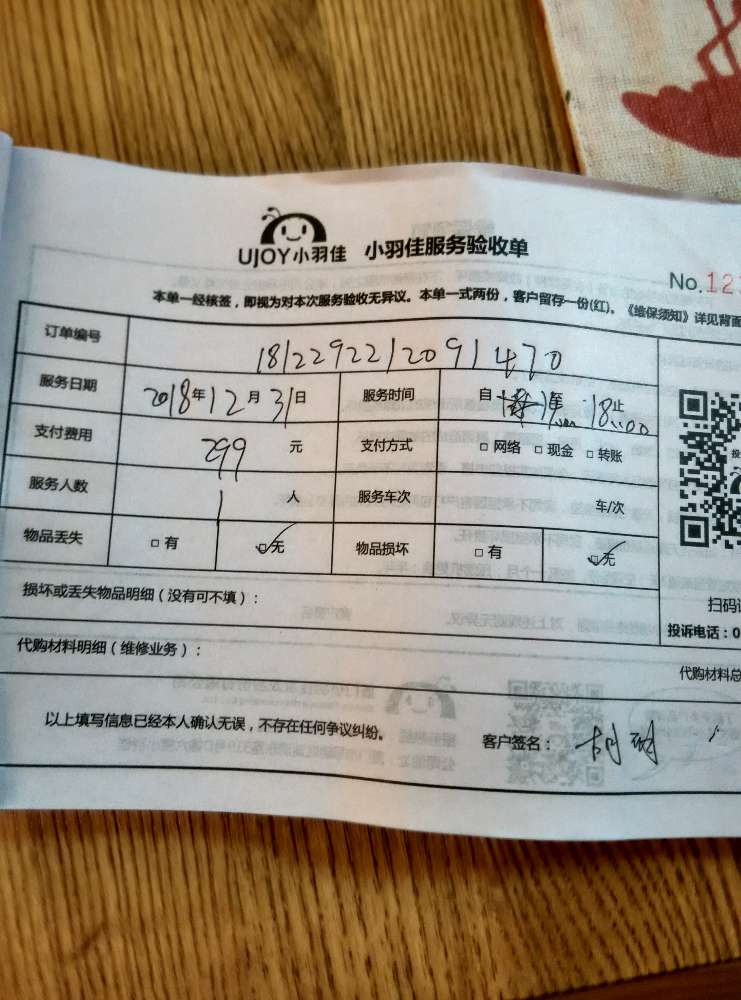 UJOY小羽佳 小羽佳服务验收单
No.12
本单一经核签，即视为对本次服务验收无异议。本单一式两份，客户留存一份(红)。《维保须知》详见背面
订单编号 1812292212091470
服务日期 2018年12月31日 服务时间 自 18:00止
支付费用 299 元 支付方式 □ 网络 □ 现金 □ 转账
服务人数 1 人 服务车次 车/次
物品丢失 □ 有 □无 物品损坏 □ 有 □无
损坏或丢失物品明细（没有可不填）：
扫码
投诉电话：0
代购材料明细（维修业务）：
代购材料总
以上填写信息已经本人确认无误，不存在任何争议纠纷。
客户签名：